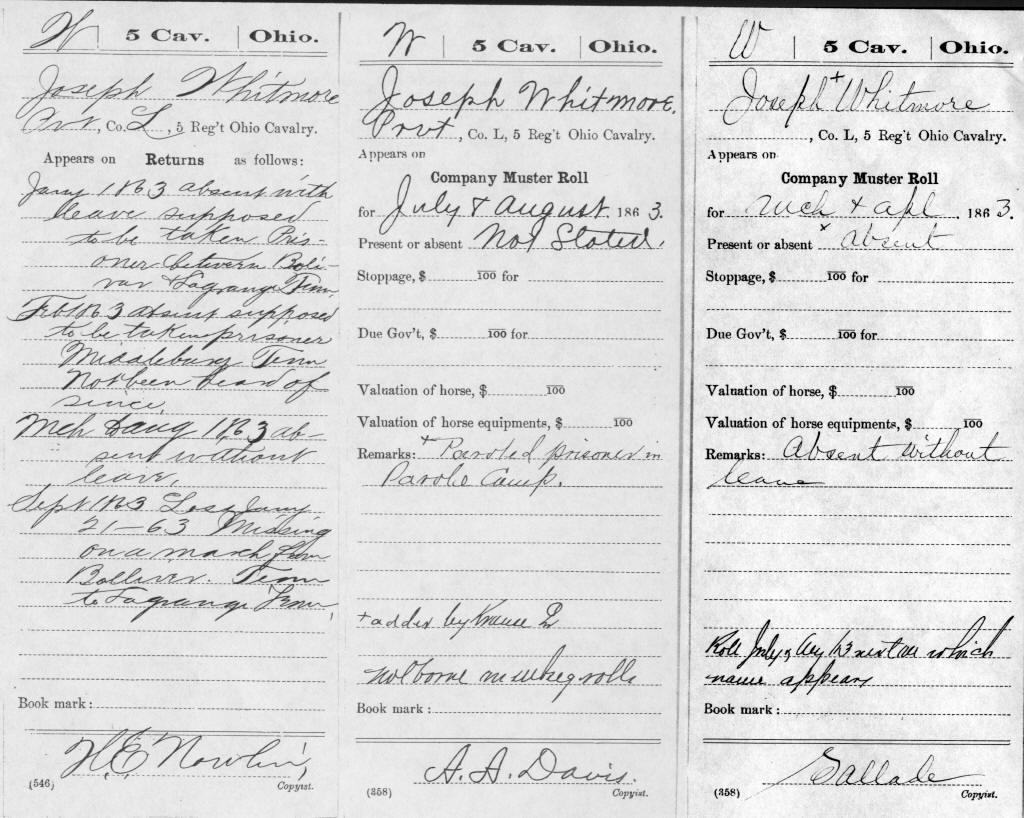 W | 5 Cav. | Ohio.
Joseph Whitmore
Pvt, Co. L, 5 Reg't Ohio Cavalry.
Appears on Returns as follows:
Jany 1863 absent with
leave supposed
to be taken Pris-
oner between Boli-
var & Lagrange Tenn.
Feb 1863 absent supposed
to be taken prisoner
Middleburg Tenn
Not been heard of
since.
Mch 1863 ab-
sent without
leave.
Sept 1863 Loss Jany
21-63 Missing
on a march from
Bolliver Tenn
to Lagrange Tenn,
Book mark:
H.E. Nowlin,
(546) Copyist.
W | 5 Cav. | Ohio.
Joseph Whitmore.
Prvt, Co. L, 5 Reg't Ohio Cavalry.
Appears on
Company Muster Roll
for July & August. 1863.
Present or absent Not Stated.
Stoppage, $ 100 for
Due Gov't, $ 100 for
Valuation of horse, $ 100
Valuation of horse equipments, $ 100
Remarks: + Paroled prisoner in
Parole Camp.
+ added by
not borne on rolls
Book mark:
A. A. Davis.
(358) Copyist.
W | 5 Cav. | Ohio.
Joseph + Whitmore
, Co. L, 5 Reg't Ohio Cavalry.
Appears on
Company Muster Roll
for Mch & Apl. 1863.
Present or absent x absent
Stoppage, $ 100 for
Due Gov't, $ 100 for
Valuation of horse, $ 100
Valuation of horse equipments, $ 100
Remarks: Absent without
leave
Roll July & Aug 63 next on which
name appears
Book mark:
Sallade
(358) Copyist.